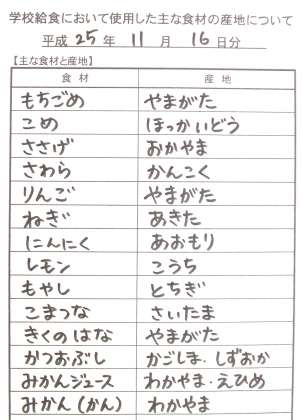 学校給食において使用した主な食材の産地について
平成 25 年 11 月 16 日分
【主な食材と産地】
食材 産地
もちごめ やまがた
こめ ほっかいどう
ささげ おかやま
さわら かんこく
りんご やまがた
ねぎ あきた
にんにく あおもり
レモン こうち
もやし とちぎ
こまつな さいたま
きくのはな やまがた
かつおぶし かごしま・しずおか
みかんジュース わかやま・えひめ
みかん(かん) わかやま